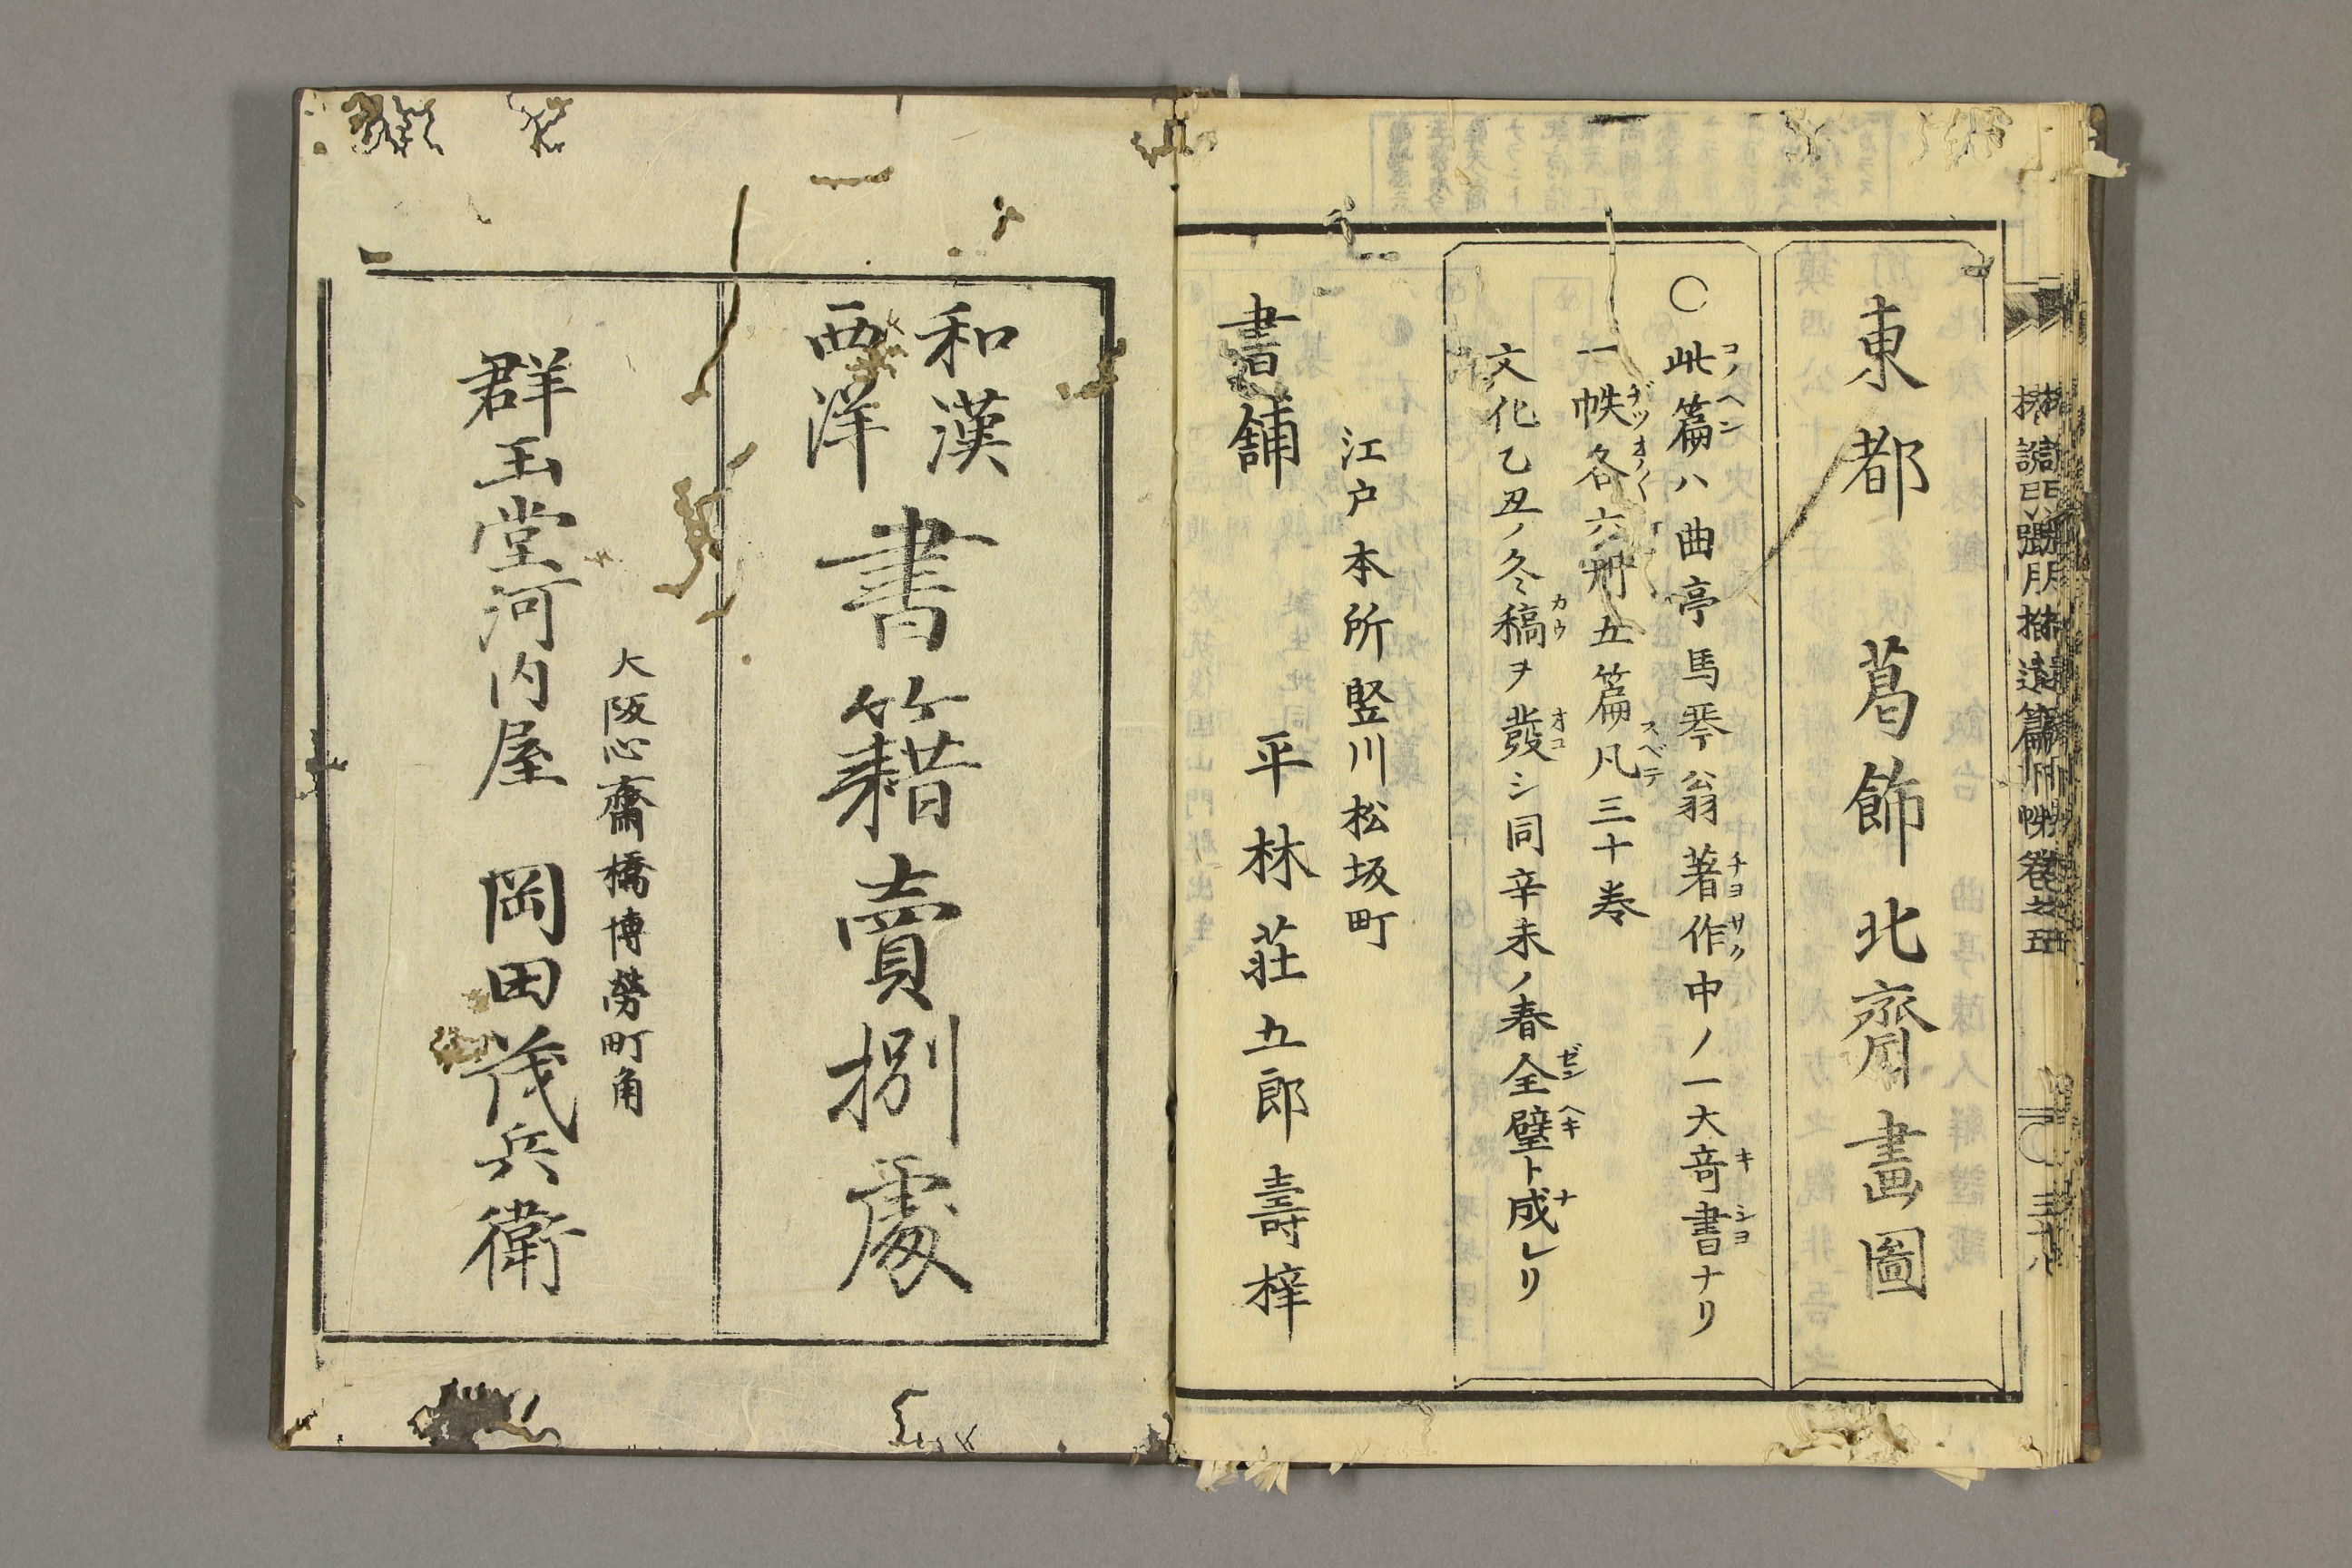 東都 葛飾北齋畫圖
〇此篇ハ曲亭馬琴翁著作中ノ一大奇書ナリ
一帙各六冊五篇凡三十巻
文化乙丑ノ冬稿ヲ發シ同辛未ノ春全璧ト成レリ
江戸本所竪川松坂町
書舗 平林荘五郎壽梓
和漢
西洋
書籍賣捌處
大阪心齋橋博勞町角
群玉堂河内屋 岡田茂兵衛